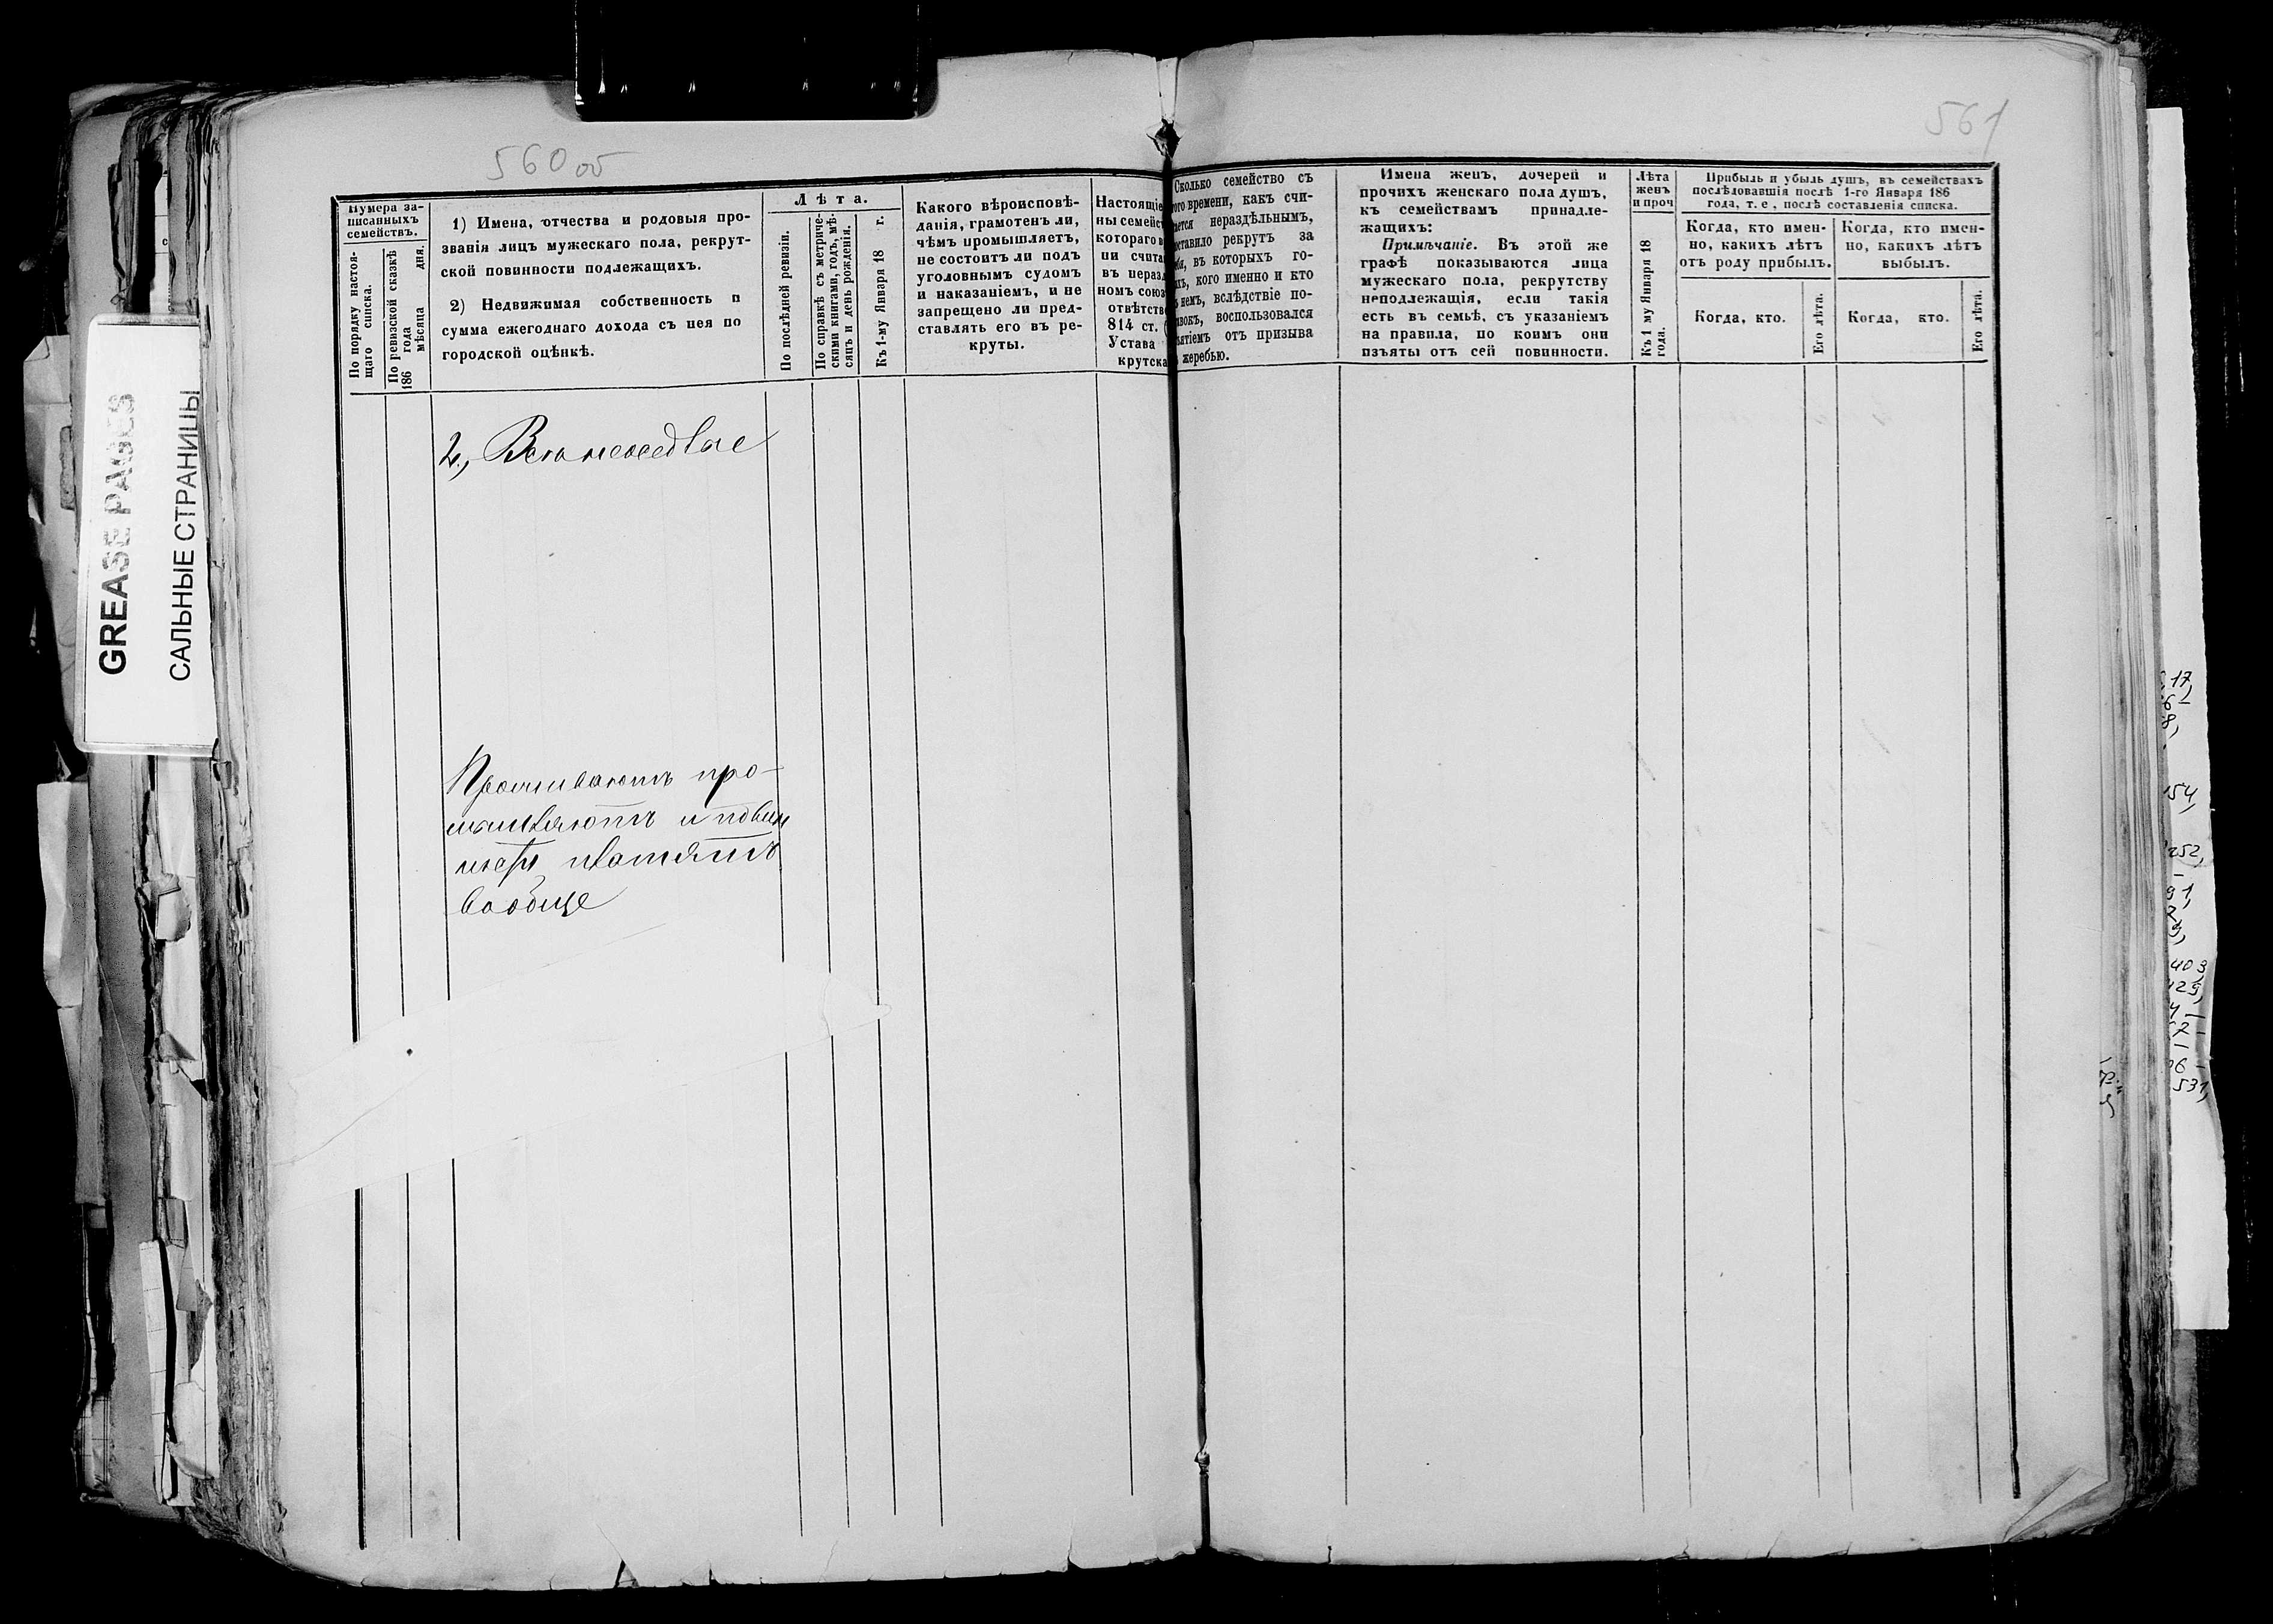 560 об
561
Нумера за-
писанныхъ
семействъ.
По порядку настоя-
щаго списка.
По ревизской сказкѣ
186 года мѣсяца дня.
1) Имена, отчества и родовыя про-
званія лицъ мужескаго пола, рекрут-
ской повинности подлежащихъ.
2) Недвижимая собственность и
сумма ежегоднаго дохода съ нея по
городской оцѣнкѣ.
Лѣта.
По послѣдней ревизіи.
По справкѣ съ метриче-
скими книгами, годъ, мѣ-
сяцъ и день рожденія.
Къ 1-му Января 18 г.
Какого вѣроисповѣ-
данія, грамотенъ ли,
чѣмъ промышляетъ,
не состоитъ ли подъ
уголовнымъ судомъ
и наказаніемъ, и не
запрещено ли пред-
ставлять его въ ре-
круты.
Настоящіе
ны семейст
котораго в
ни счита
въ нераз
номъ союз
отвѣтств
814 ст. (
Устава
крутска
Сколько семейство съ
того времени, какъ счи-
тается нераздѣльнымъ,
поставило рекрутъ за
себя, въ которыхъ го-
дахъ, кого именно и кто
въ немъ, вслѣдствіе по-
изъятіемъ отъ призыва
жеребью.
Имена женъ, дочерей и
прочихъ женскаго пола душъ,
къ семействамъ принадле-
жащихъ:
Примѣчаніе. Въ этой же
графѣ показываются лица
мужескаго пола, рекрутству
неподлежащія, если такія
есть въ семьѣ, съ указаніемъ
на правила, по коимъ они
изъяты отъ сей повинности.
Лѣта
женъ
и проч
Къ 1 му Января 18
года.
Прибыль и убыль душъ, въ семействахъ
послѣдовавшія послѣ 1-го Января 186
года, т. е, послѣ составленія списка.
Когда, кто имен-
но, какихъ лѣтъ
отъ роду прибылъ.
Когда, кто.
Его лѣта.
Когда, кто имен-
но, какихъ лѣтъ
выбылъ.
Когда, кто.
Его лѣта.
2,
Проживаютъ про-
мышляютъ и повин
ности платятъ
вообще
GREASE PAGES
САЛЬНЫЕ СТРАНИЦЫ
17,
154,
252,
91,
403
129,
531,